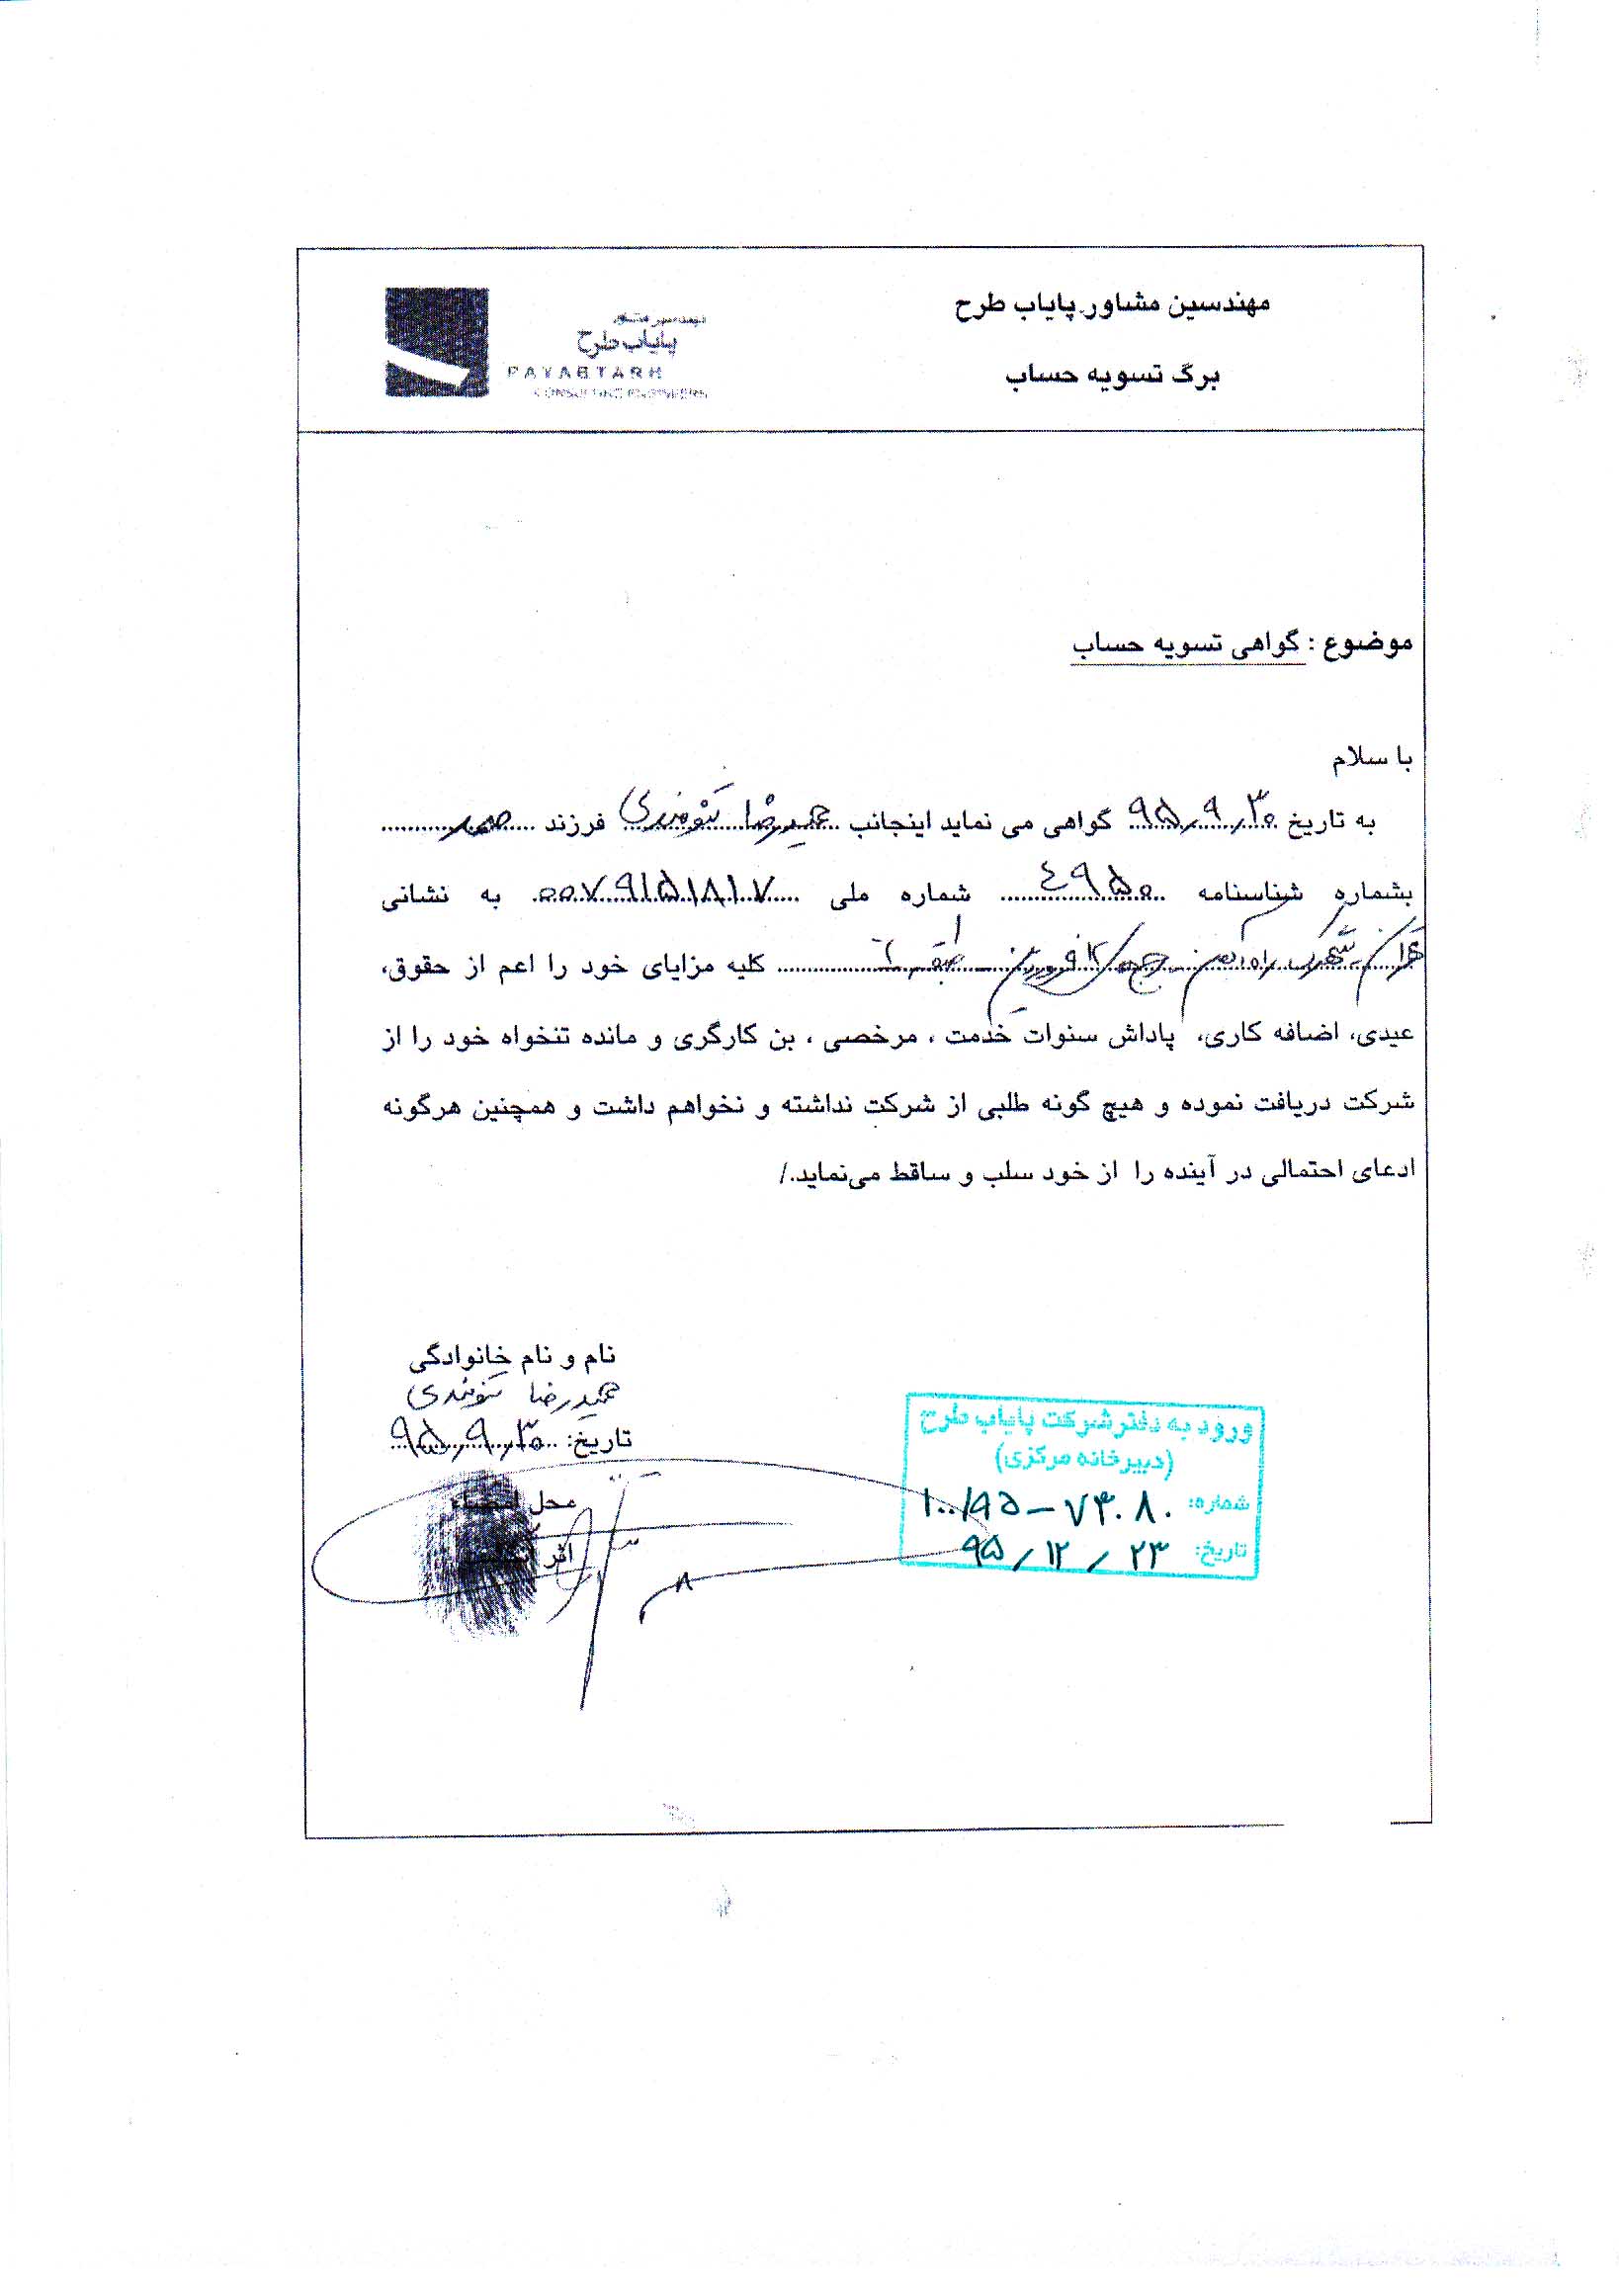 مهندسین مشاور پایاب طرح
برگ تسویه حساب
مهندسین مشاور
پایاب طرح
PAYABTARH
CONSULTING ENGINEERS
موضوع : گواهی تسویه حساب
با سلام
به تاریخ ۹۵/۹/۳۰ گواهی می نماید اینجانب حمیدرضا تنومندی فرزند صمد
بشماره شناسنامه ٤۹۵۰ شماره ملی ۰۰۷۹۱۵۱۸۱۷ به نشانی
تهران شهرک راه آهن فروردین کلیه مزایای خود را اعم از حقوق،
عیدی، اضافه کاری، پاداش سنوات خدمت ، مرخصی ، بن کارگری و مانده تنخواه خود را از
شرکت دریافت نموده و هیچ گونه طلبی از شرکت نداشته و نخواهم داشت و همچنین هرگونه
ادعای احتمالی در آینده را از خود سلب و ساقط می‌نماید./
نام و نام خانوادگی
حمیدرضا تنومندی
تاریخ: ۹۵/۹/۳۰
محل امضاء
اثر
ورود به دفتر شرکت پایاب طرح
(دبیرخانه مرکزی)
شماره: ۱۰۰/۹۵-۷۴۰۸۰
تاریخ: ۹۵/۱۲/۲۳